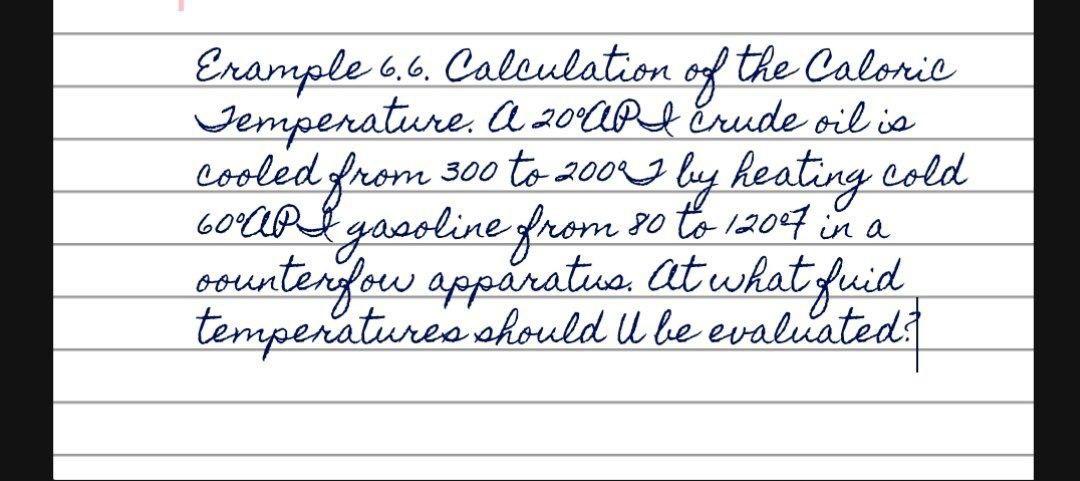 Example 6.6. Calculation of the Caloric
Temperature. A 20°API crude oil is
cooled from 300 to 200°F by heating cold
60°API gasoline from 80 to 120°F in a
counterfow apparatus. At what fuid
temperatures should U be evaluated?